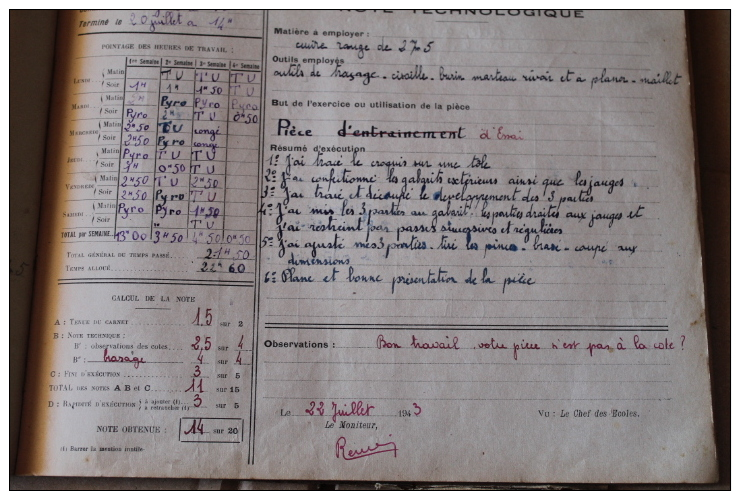 NOTE TECHNOLOGIQUE
Terminé le 20 juillet à 14h
POINTAGE DES HEURES DE TRAVAIL :
1ère Semaine 2e Semaine 3e Semaine 4e Semaine
LUNDI Matin TU TU TU
Soir 1H 1H 1H50 TU
MARDI Matin Pyro Pyro Pyro
Soir Pyro TU 0H50
MERCREDI Matin 2H50 TU congé
Soir 3H50 Pyro congé
JEUDI Matin Pyro TU TU
Soir 3H 0H50 TU
VENDREDI Matin 2H50 TU 2H50
Soir 2H50 Pyro TU
SAMEDI Matin Pyro Pyro 1H50
Soir " TU
TOTAL par SEMAINE 13H00 3H50 4H50 0H50
TOTAL GÉNÉRAL DE TEMPS PASSÉ 21H50
TEMPS ALLOUÉ 22H 60
CALCUL DE LA NOTE
A : TENUE DU CARNET 1.5 sur 2
B : NOTE TECHNIQUE :
B' : observations des cotes 2,5 sur 4
B" : brasage 4 sur 4
C : FINI D'EXÉCUTION 3 sur 5
TOTAL DES NOTES A B et C 11 sur 15
D : RAPIDITÉ D'EXÉCUTION à ajouter (1) à retrancher (1) 3 sur 5
NOTE OBTENUE : 14 sur 20
(1) Barrer la mention inutile
Matière à employer :
cuivre rouge de 27×5
Outils employés
outils de traçage - cisaille - burin marteau rivoir et a planer - maillet
But de l'exercice ou utilisation de la pièce
Pièce d'entrainement d'Essai
Résumé d'exécution
1° J'ai tracé le croquis sur une tôle
2° J'ai confectionné les gabarits extérieurs ainsi que les jauges
3° J'ai tracé et découpé le developpement des 3 parties
4° J'ai mis les 3 parties au gabarit - les parties droites aux jauges et
j'ai restreint par passes successives et régulières
5° J'ai ajusté mes 3 parties - tiré les pinces - brasé - coupé aux
dimensions
6° Plané et bonne présentation de la pièce
Observations : Bon travail, votre pièce n'est pas à la cote ?
Le 22 Juillet 1943 VU : Le Chef des Ecoles.
Le Moniteur,